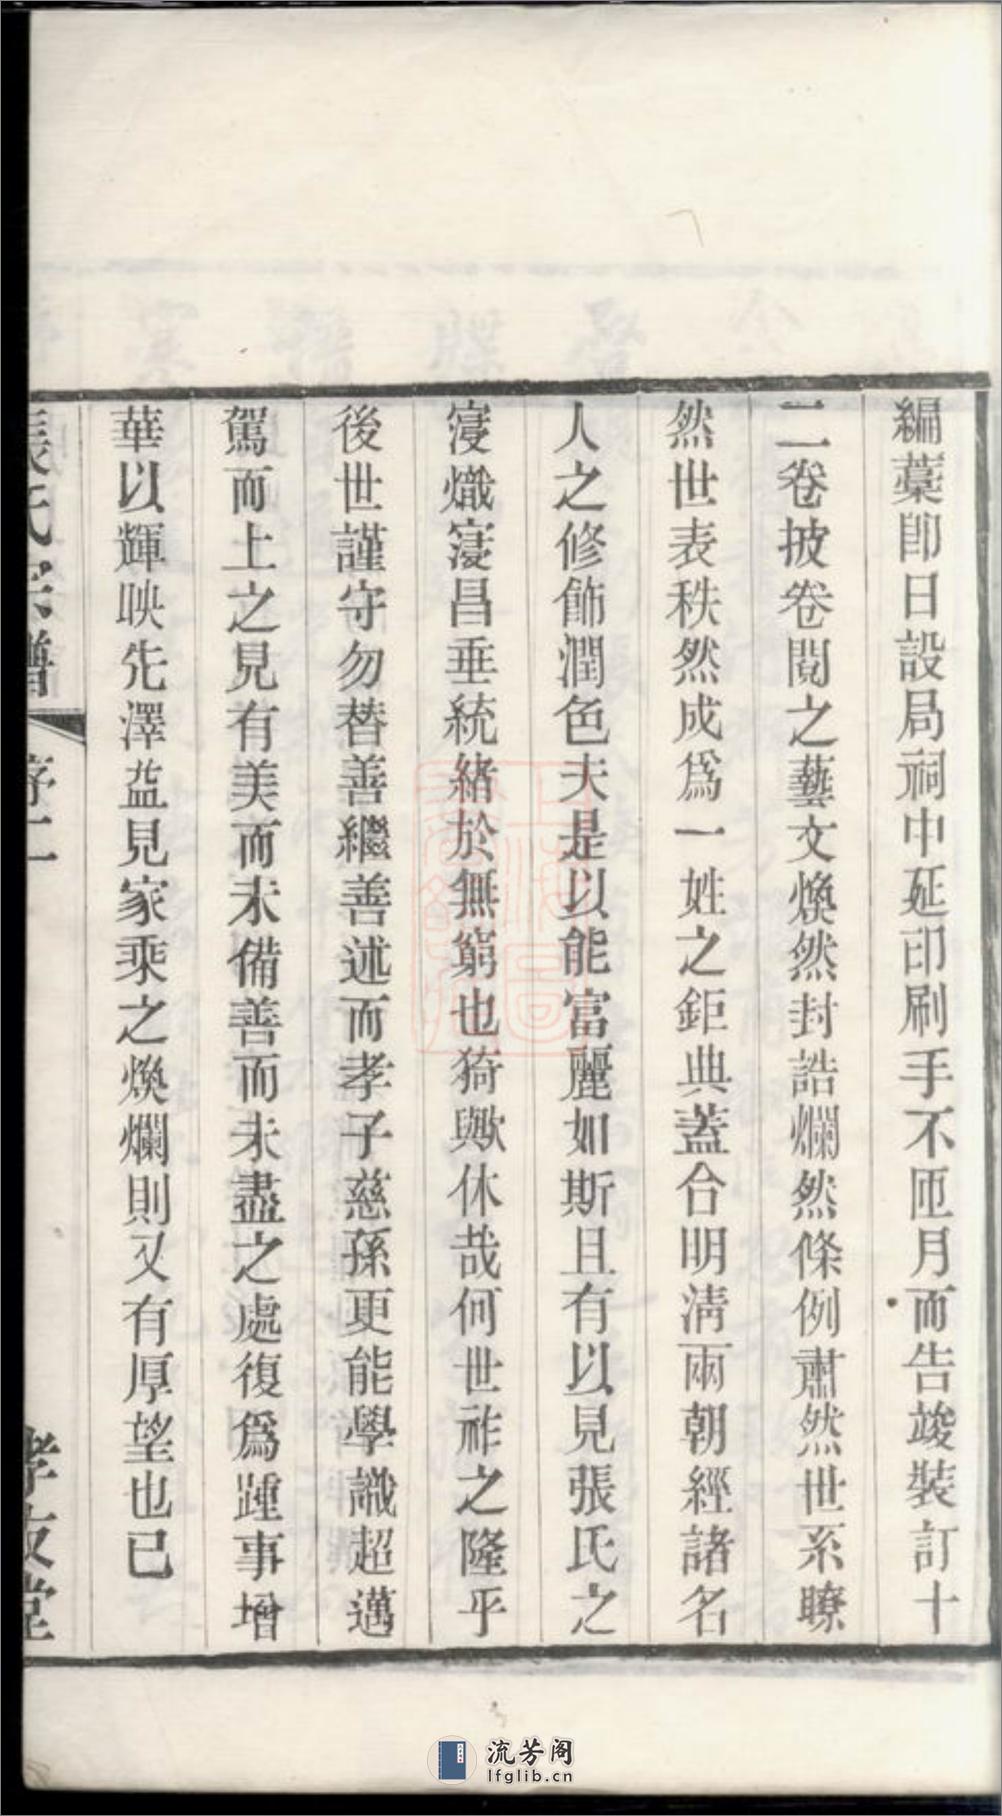 編藁卽日設局祠中延印刷手不匝月而告竣裝訂十
二卷披卷閱之藝文煥然封誥爛然條例肅然世系瞭
然世表秩然成爲一姓之鉅典蓋合明淸兩朝經諸名
人之修飾潤色夫是以能富麗如斯且有以見張氏之
寖熾寖昌垂統緒於無窮也猗歟休哉何世祚之隆乎
後世謹守勿替善繼善述而孝子慈孫更能學識超邁
駕而上之見有美而未備善而未盡之處復爲踵事增
華以輝映先澤益見家乘之煥爛則又有厚望也已
張氏宗譜 序二 孝友堂
上海圖書館藏
流芳阁
lfglib.cn